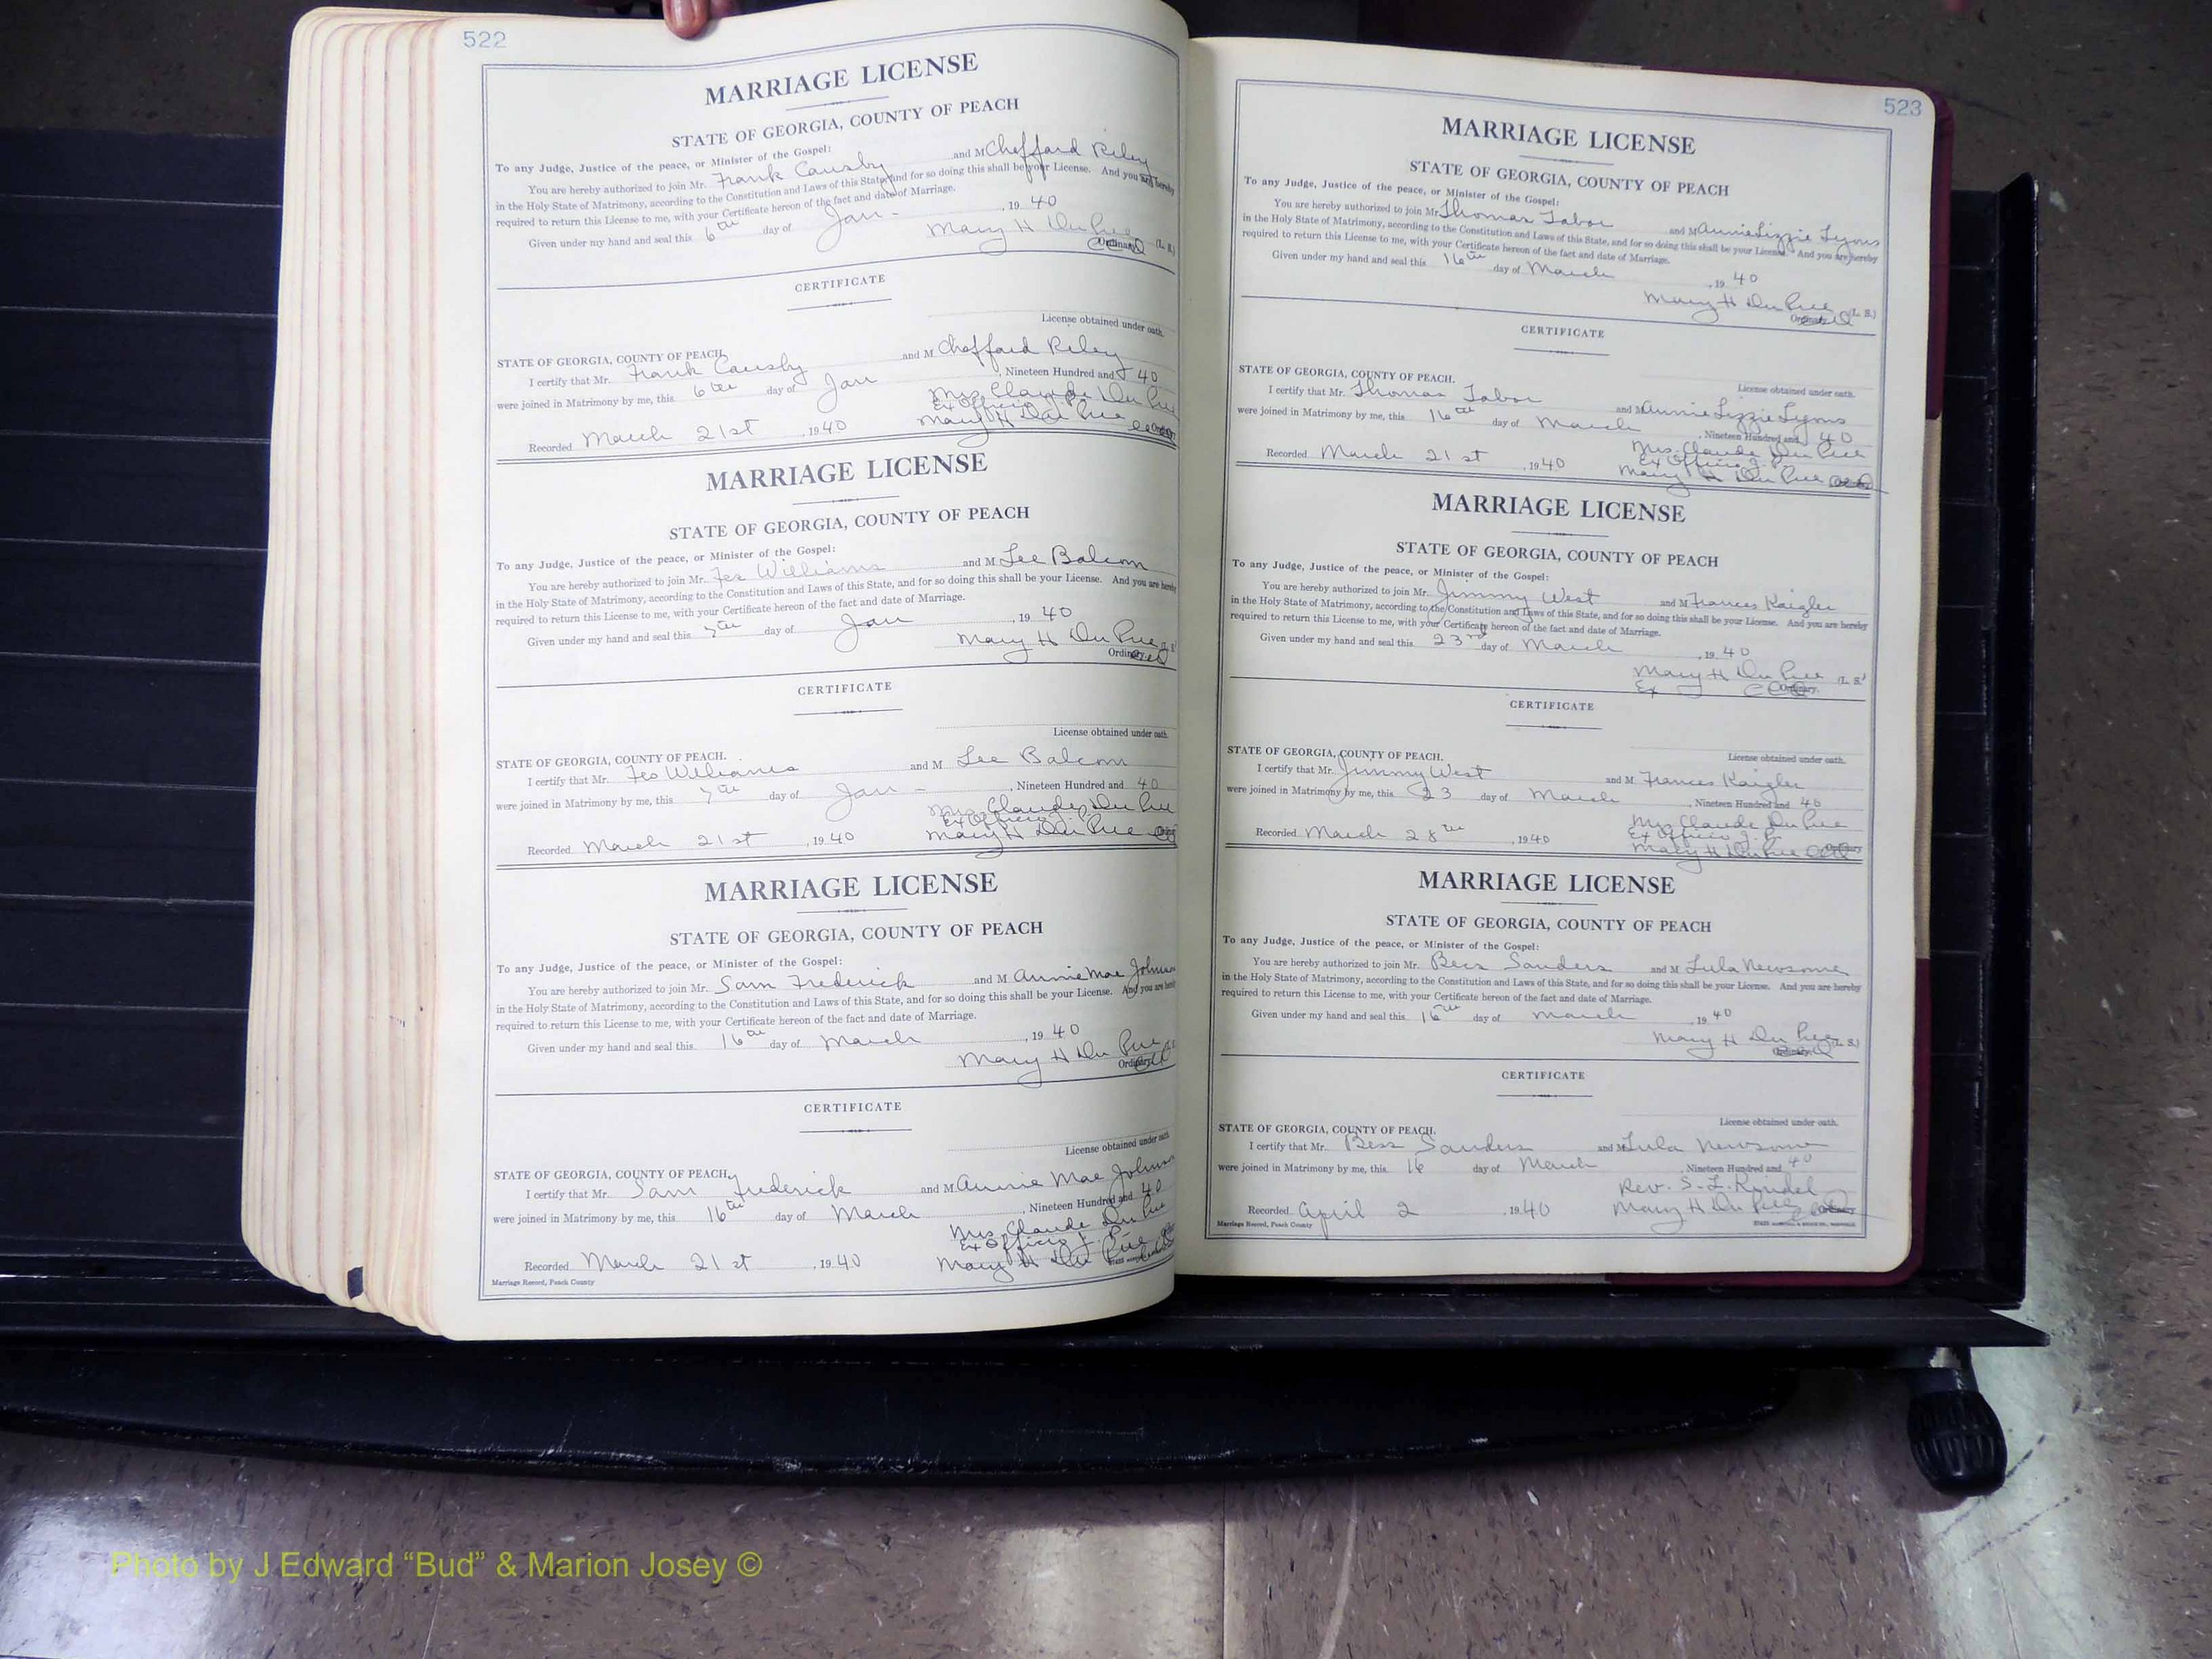 522
MARRIAGE LICENSE
STATE OF GEORGIA, COUNTY OF PEACH
To any Judge, Justice of the peace, or Minister of the Gospel:
You are hereby authorized to join Mr. Frank Causby and M Cheffard Riley
in the Holy State of Matrimony, according to the Constitution and Laws of this State, and for so doing this shall be your License. And you are hereby
required to return this License to me, with your Certificate hereon of the fact and date of Marriage.
Given under my hand and seal this 6th day of Jan - , 19 40
Mary H Du Pree (L. S.)
Ordinary
CERTIFICATE
License obtained under oath.
STATE OF GEORGIA, COUNTY OF PEACH.
I certify that Mr. Frank Causby and M Cheffard Riley
were joined in Matrimony by me, this 6th day of Jan , Nineteen Hundred and 40
Mrs. Claude Du Pree
Ex Officio J. P.
Recorded March 21st , 19 40 Mary H Du Pree
MARRIAGE LICENSE
STATE OF GEORGIA, COUNTY OF PEACH
To any Judge, Justice of the peace, or Minister of the Gospel:
You are hereby authorized to join Mr. Williams and M Lee Balcom
in the Holy State of Matrimony, according to the Constitution and Laws of this State, and for so doing this shall be your License. And you are hereby
required to return this License to me, with your Certificate hereon of the fact and date of Marriage.
Given under my hand and seal this 7th day of Jan , 19 40
Mary H Du Pree
Ordinary
CERTIFICATE
License obtained under oath.
STATE OF GEORGIA, COUNTY OF PEACH.
I certify that Mr. Williams and M Lee Balcom
were joined in Matrimony by me, this 7th day of Jan - , Nineteen Hundred and 40
Mrs. Claude Du Pree
Ex Officio J. P.
Recorded March 21st , 19 40 Mary H Du Pree
MARRIAGE LICENSE
STATE OF GEORGIA, COUNTY OF PEACH
To any Judge, Justice of the peace, or Minister of the Gospel:
You are hereby authorized to join Mr. Sam Frederick and M Annie Mae Johnson
in the Holy State of Matrimony, according to the Constitution and Laws of this State, and for so doing this shall be your License. And you are hereby
required to return this License to me, with your Certificate hereon of the fact and date of Marriage.
Given under my hand and seal this 16th day of March , 19 40
Mary H Du Pree
Ordinary
CERTIFICATE
License obtained under oath
STATE OF GEORGIA, COUNTY OF PEACH.
I certify that Mr. Sam Frederick and M Annie Mae Johnson
were joined in Matrimony by me, this 16th day of March , Nineteen Hundred and 40
Mrs. Claude Du Pree
Ex Officio J. P.
Recorded March 21st , 19 40 Mary H Du Pree
Marriage Record, Peach County
523
MARRIAGE LICENSE
STATE OF GEORGIA, COUNTY OF PEACH
To any Judge, Justice of the peace, or Minister of the Gospel:
You are hereby authorized to join Mr. Thomas Tabor and M Annie Lizzie Lyons
in the Holy State of Matrimony, according to the Constitution and Laws of this State, and for so doing this shall be your License. And you are hereby
required to return this License to me, with your Certificate hereon of the fact and date of Marriage.
Given under my hand and seal this 16th day of March , 19 40
Mary H Du Pree (L. S.)
Ordinary
CERTIFICATE
License obtained under oath.
STATE OF GEORGIA, COUNTY OF PEACH.
I certify that Mr. Thomas Tabor and M Annie Lizzie Lyons
were joined in Matrimony by me, this 16th day of March , Nineteen Hundred and 40
Mrs. Claude Du Pree
Ex Officio J. P.
Recorded March 21st , 19 40 Mary H Du Pree
MARRIAGE LICENSE
STATE OF GEORGIA, COUNTY OF PEACH
To any Judge, Justice of the peace, or Minister of the Gospel:
You are hereby authorized to join Mr. Jimmy West and M Frances Kaigler
in the Holy State of Matrimony, according to the Constitution and Laws of this State, and for so doing this shall be your License. And you are hereby
required to return this License to me, with your Certificate hereon of the fact and date of Marriage.
Given under my hand and seal this 23rd day of March , 19 40
Mary H Du Pree (L. S.)
Ex Ordinary.
CERTIFICATE
License obtained under oath.
STATE OF GEORGIA, COUNTY OF PEACH.
I certify that Mr. Jimmy West and M Frances Kaigler
were joined in Matrimony by me, this 23 day of March , Nineteen Hundred and 40
Mrs Claude Du Pree
Ex Officio J. P.
Recorded March 28th , 19 40 Mary H Du Pree
MARRIAGE LICENSE
STATE OF GEORGIA, COUNTY OF PEACH
To any Judge, Justice of the peace, or Minister of the Gospel:
You are hereby authorized to join Mr. Bess Sanders and M Lula Newsome
in the Holy State of Matrimony, according to the Constitution and Laws of this State, and for so doing this shall be your License. And you are hereby
required to return this License to me, with your Certificate hereon of the fact and date of Marriage.
Given under my hand and seal this 16th day of March , 19 40
Mary H Du Pree (L. S.)
Ordinary
CERTIFICATE
License obtained under oath.
STATE OF GEORGIA, COUNTY OF PEACH.
I certify that Mr. Bess Sanders and M Lula Newsome
were joined in Matrimony by me, this 16 day of March , Nineteen Hundred and 40
Rev. S. L.
Recorded April 2 , 19 40 Mary H Du Pree
Marriage Record, Peach County
Photo by J Edward “Bud” & Marion Josey ©